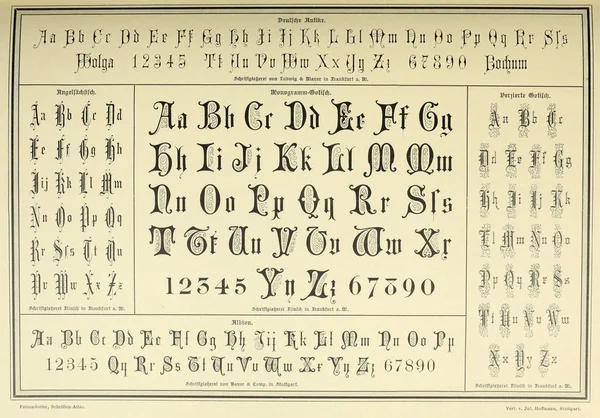 Deutsche Antike.
Aa Bb Cc Dd Ee Ff Gg Hh Ii Jj Kk Ll Mm Nn Oo Pp Qq Rr Sſs
Wolga 12345 Tt Uu Vv Ww Xx Yy Zz 67890 Bochum
Schriftgießerei von Ludwig & Mayer in Frankfurt a. M.
Angelsächsisch.
Aa Bb Cc Dd
Ee Ff Gg Hh
Iij Kk Ll Mm
Nn Oo Pp Qq
Rr Sſs Tt Uu
Vv Ww Xx Zz
Schriftgießerei Flinsch in Frankfurt a. M.
Monogramm-Gotisch.
Aa Bb Cc Dd Ee Ff Gg
Hh Ii Jj Kk Ll M Mm
Nn Oo Pp Qq Rr Sſs
T Tt Uu V Vv Ww Xx
12345 Yy Zz 67890
Schriftgießerei Flinsch in Frankfurt a. M.
Verzierte Gotisch.
Aa Bb Cc
Dd Ee Ff Gg
Hh Ii Jj Kk
Ll Mm Nn Oo
Pp Qq Rr Ss
Tt Uu Vv Ww
Xx Yy Zz
Schriftgießerei Flinsch in Frankfurt a. M.
Albion.
Aa Bb Cc Dd Ee Ff Gg Hh Iij Kk Ll Mm Nn Oo Pp
12345 Qq Rr Ss Tt Uu Vv Ww Xx Yy Zz 67890
Schriftgießerei von Bauer & Comp. in Stuttgart.
Petzendorfer, Schriften-Atlas.
Verl. v. Jul. Hoffmann, Stuttgart.